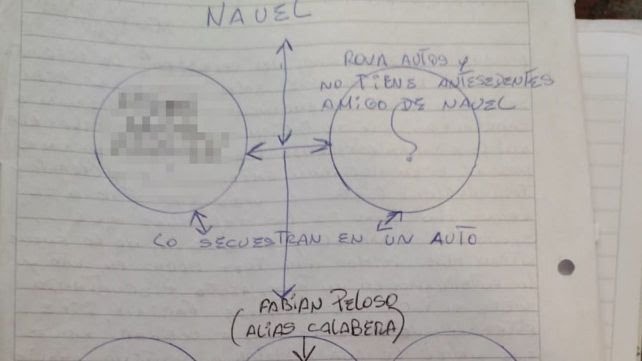 NAUEL
ROVA AUTOS Y
NO TIENE ANTESEDENTES
AMIGO DE NAUEL
?
LO SECUESTRAN EN UN AUTO
FABIAN PELOSO
(ALIAS CALABERA)